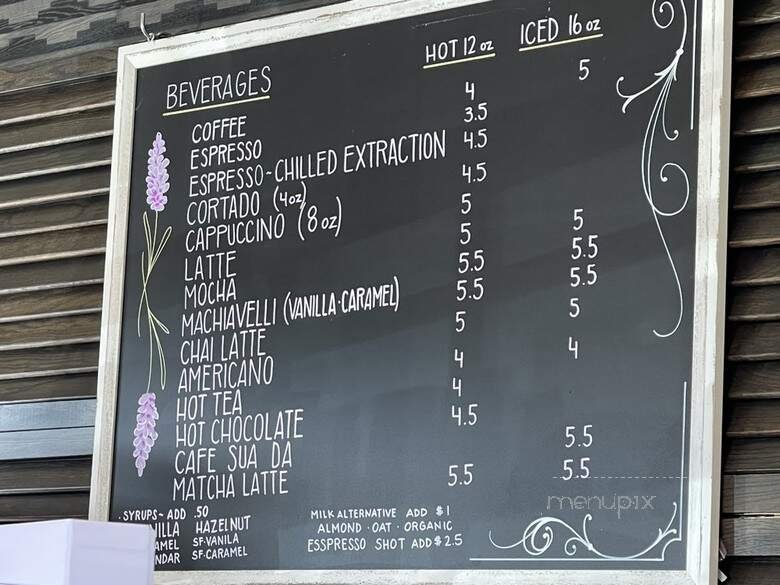 HOT 12 oz ICED 16 oz
BEVERAGES
COFFEE 4 5
ESPRESSO 3.5
ESPRESSO-CHILLED EXTRACTION 4.5
CORTADO (4oz) 4.5
CAPPUCCINO (8oz) 5
LATTE 5 5
MOCHA 5.5 5.5
MACHIAVELLI (VANILLA·CARAMEL) 5.5 5.5
CHAI LATTE 5 5
AMERICANO 4 4
HOT TEA 4
HOT CHOCOLATE 4.5
CAFE SUA DA 5.5
MATCHA LATTE 5.5 5.5
SYRUPS- ADD .50
HAZELNUT
SF-VANILA
SF-CARAMEL
MILK ALTERNATIVE ADD $1
ALMOND · OAT · ORGANIC
ESSPRESSO SHOT ADD $2.5
menupix